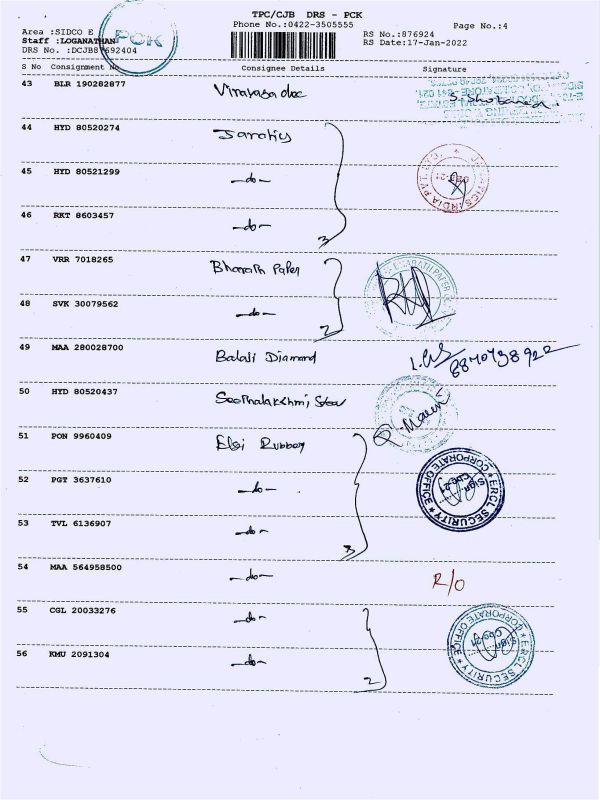 TPC/CJB DRS - PCK
Phone No.:0422-3505555
Page No.:4
Area :SIDCO E
Staff :LOGANATHAN
DRS No. :DCJB87692404
PCK
RS No.:876924
RS Date:17-Jan-2022
S No Consignment No Consignee Details Signature
43 BLR 190282877
44 HYD 80520274
45 HYD 80521299 -do-
46 RKT 8603457 -do-
3
47 VRR 7018265 Bharath Paper
48 SVK 30079562 -do-
2
49 MAA 280028700 Balaji Diamond
50 HYD 80520437
51 PON 9960409 Elgi Rubber
52 PGT 3637610 -do-
53 TVL 6136907 -do-
3
ERCL SECURITY
CORPORATE OFFICE
54 MAA 564958500 -do- R/O
55 CGL 20033276 -do-
56 KMU 2091304 -do-
2
ERCL SECURITY
CORPORATE OFFICE